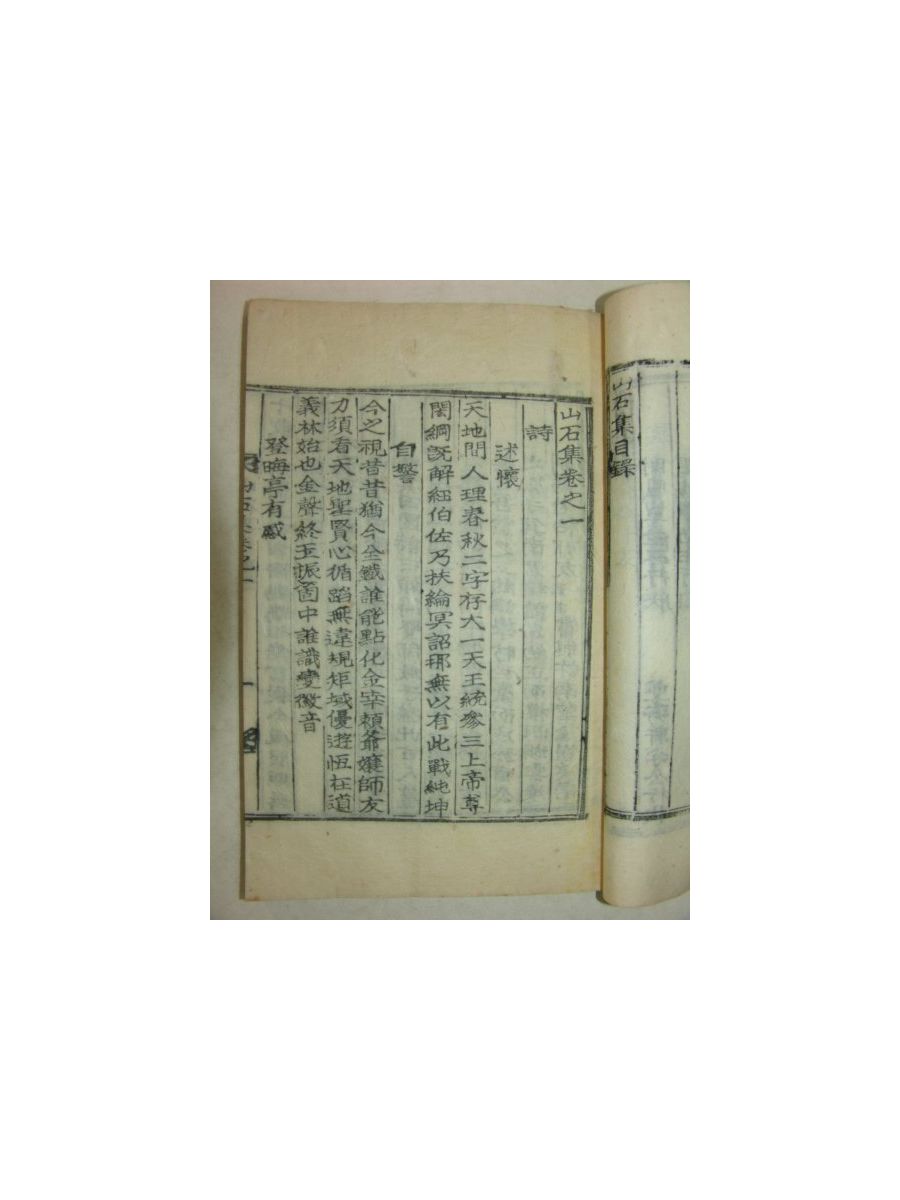 山石集目錄
山石集卷之一
詩
述懷
天地間人理春秋二字存大一天王統參三上帝尊
閏綱旣解紐伯佐乃扶綸冥詔那無以有此戰純坤
自警
今之視昔昔猶今全鐵誰能點化金宲賴爺孃師友
力須看天地聖賢心循蹈無違規矩域優遊恆在道
義林始也金聲終玉振箇中誰識變徽音
登晦亭有感